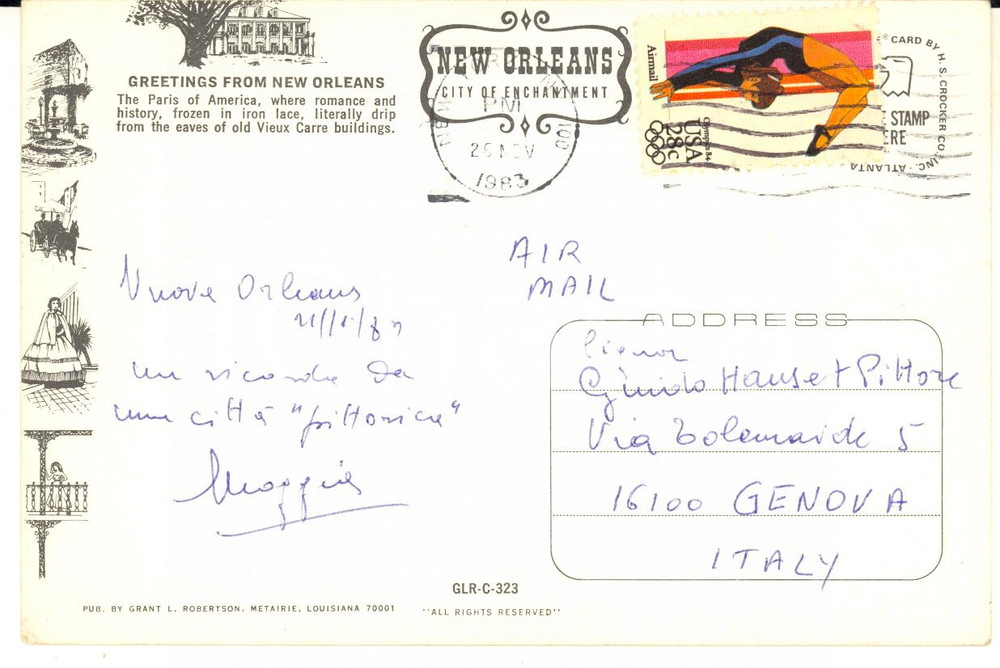 GREETINGS FROM NEW ORLEANS
The Paris of America, where romance and
history, frozen in iron lace, literally drip
from the eaves of old Vieux Carre buildings.
NEW ORLEANS
CITY OF ENCHANTMENT
PM
NOV
1983
Airmail
Olympics 84
USA
28c
CARD BY H. S. CROCKER CO., INC. · ATLANTA
STAMP
ERE
AIR
MAIL
Nuova Orleans
un ricordo da
una città "pittorica"
ADDRESS
Signor
Guido Hauset Pittore
Via Tolemaide 5
16100 GENOVA
ITALY
GLR-C-323
PUB. BY GRANT L. ROBERTSON, METAIRIE, LOUISIANA 70001
"ALL RIGHTS RESERVED"